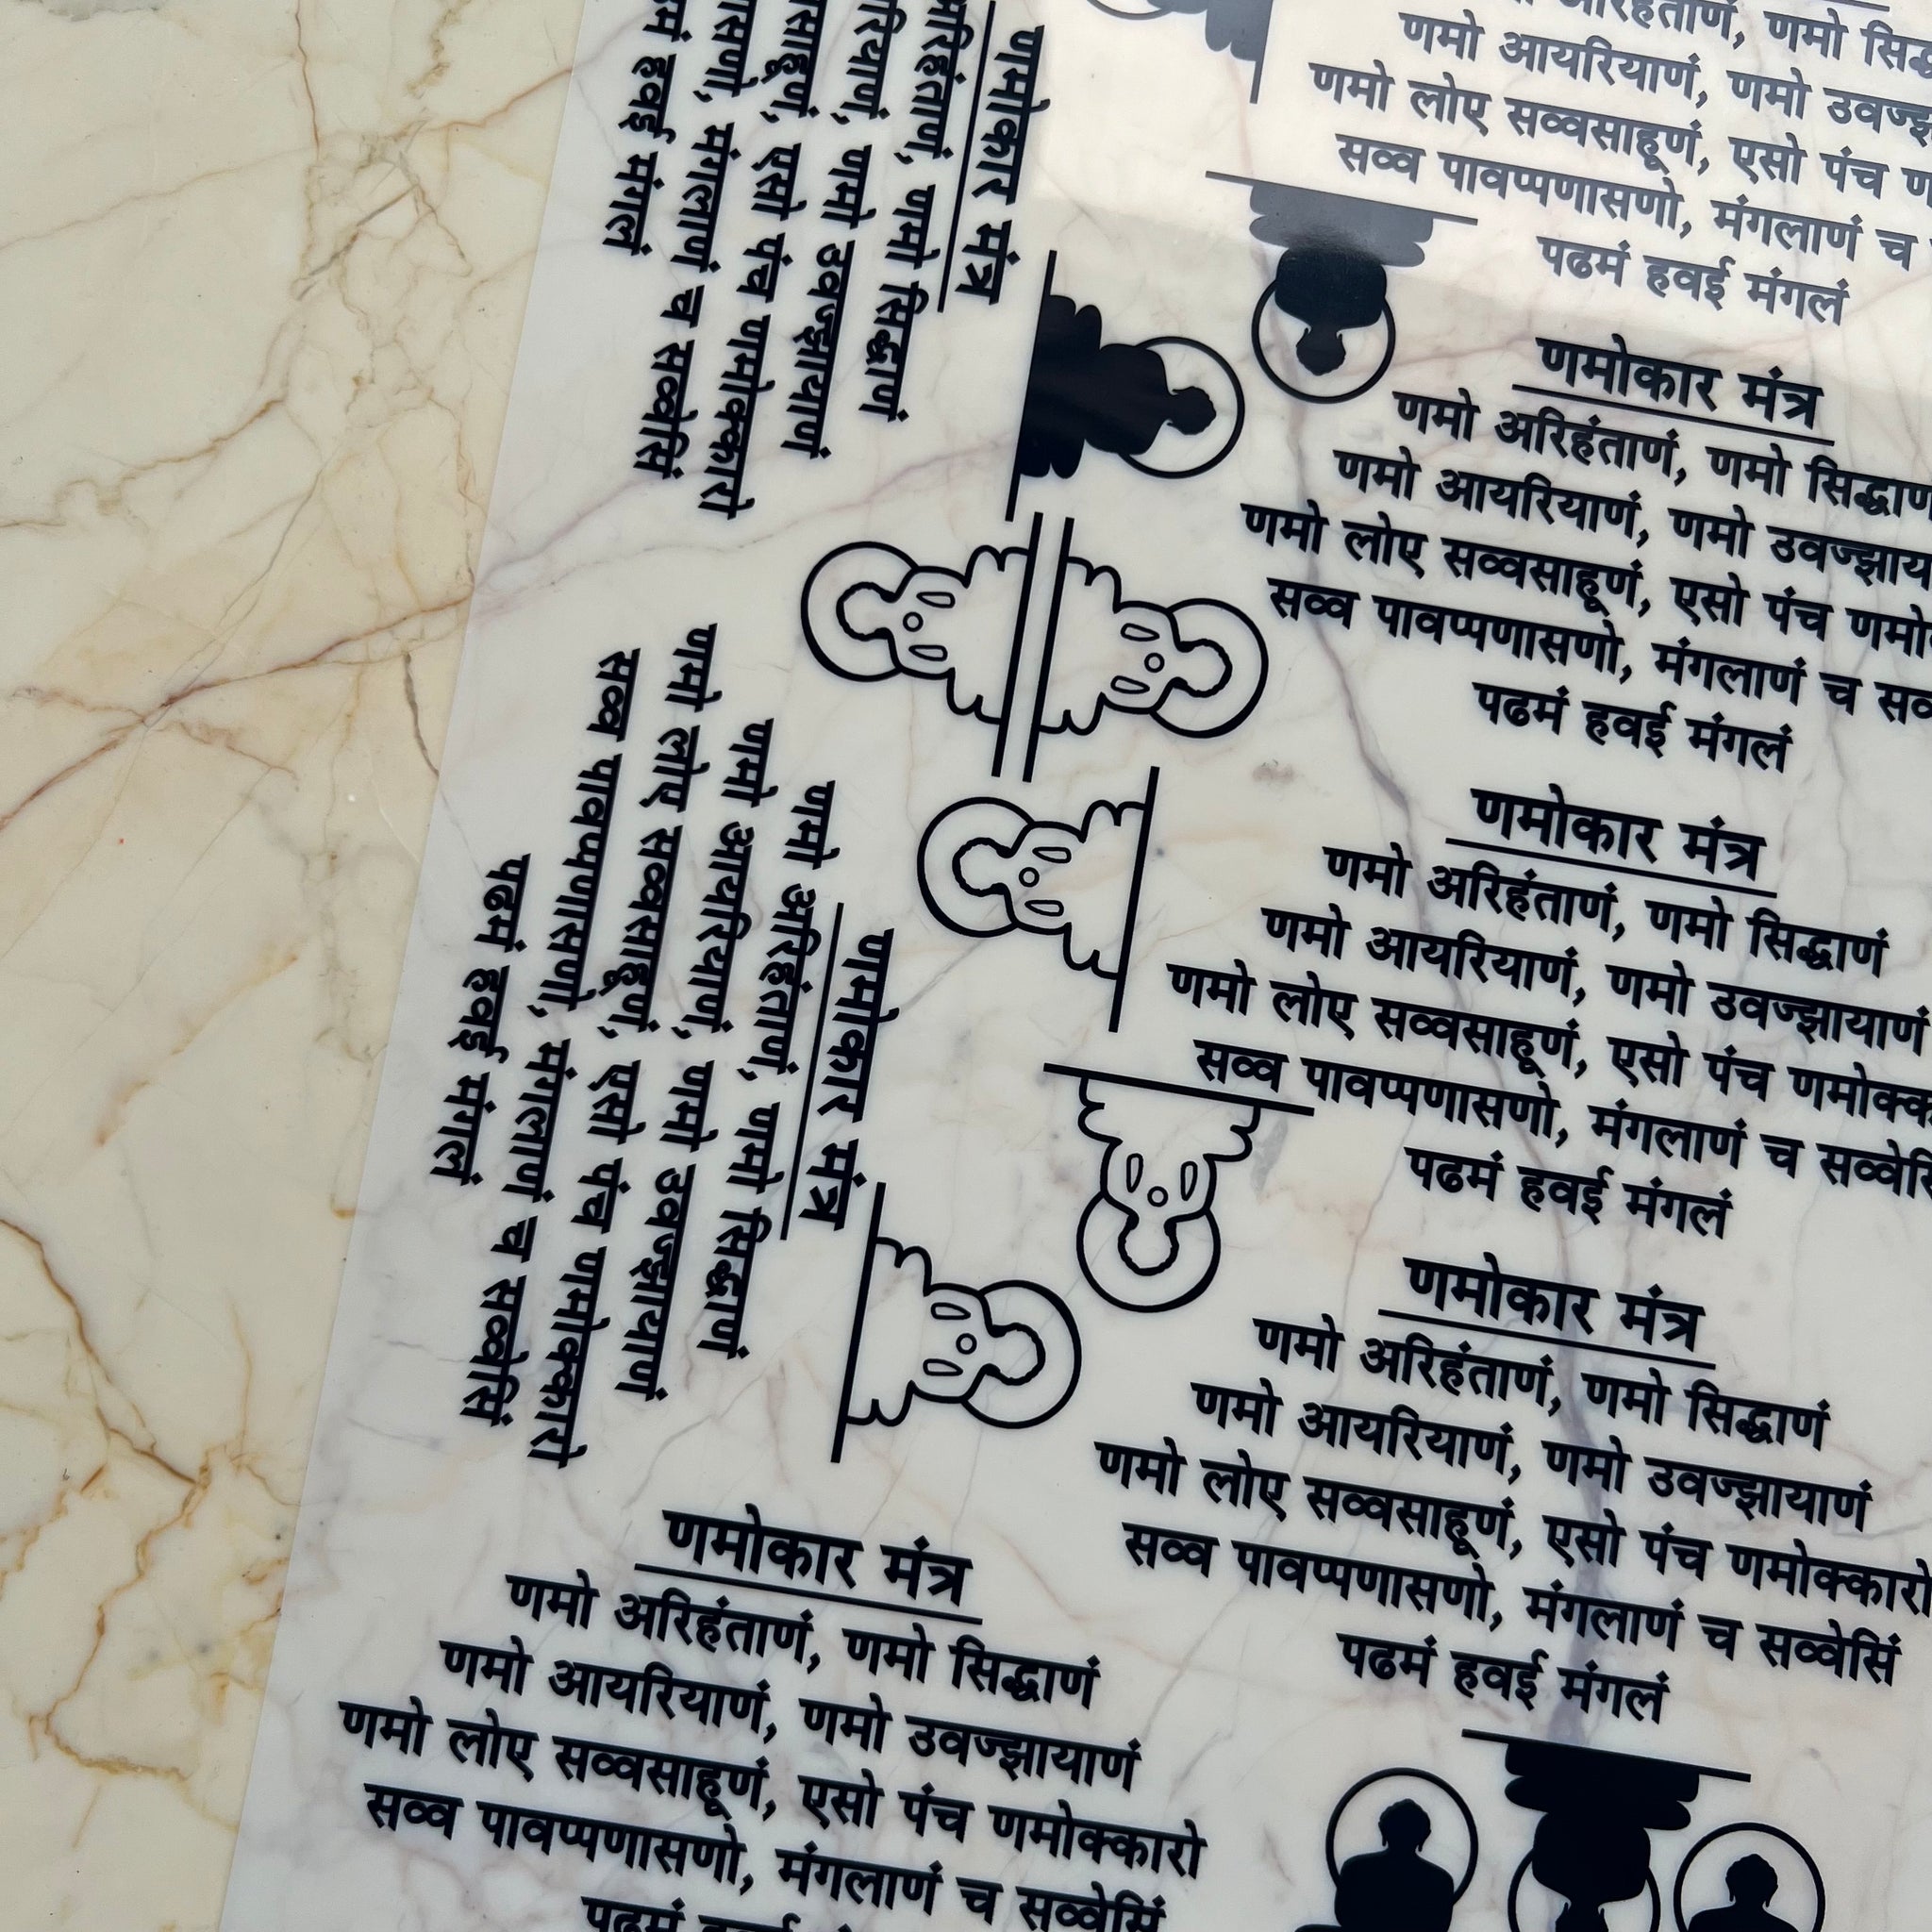 अरिहंताणं, णमो
णमो आयरियाणं, णमो
णमो लोए सव्वसाहूणं, एसो पंच
सव्व पावप्पणासणो, मंगलाणं च
पढमं हवई मंगलं
णमोकार मंत्र
णमो अरिहंताणं, णमो
णमो आयरियाणं, णमो
णमो लोए सव्वसाहूणं, एसो पंच
सव्व पावप्पणासणो, मंगलाणं च
पढमं हवई मंगलं
णमोकार मंत्र
णमो अरिहंताणं, णमो सिद्धाणं
णमो आयरियाणं, णमो उवज्झायाणं
णमो लोए सव्वसाहूणं, एसो पंच
सव्व पावप्पणासणो, मंगलाणं च
पढमं हवई मंगलं
णमोकार मंत्र
णमो अरिहंताणं, णमो सिद्धाणं
णमो आयरियाणं, णमो उवज्झायाणं
णमो लोए सव्वसाहूणं, एसो पंच णमोक्कारो
सव्व पावप्पणासणो, मंगलाणं च सव्वेसिं
पढमं हवई मंगलं
णमोकार मंत्र
अरिहंताणं, णमो सिद्धाणं
णमो उवज्झायाणं
एसो पंच णमोक्कारो
मंगलाणं च सव्वेसिं
हवई मंगलं
णमोकार मंत्र
णमो अरिहंताणं, णमो सिद्धाणं
णमो आयरियाणं, णमो उवज्झायाणं
णमो लोए सव्वसाहूणं, एसो पंच णमोक्कारो
सव्व पावप्पणासणो, मंगलाणं च सव्वेसिं
पढमं हवई मंगलं
णमोकार मंत्र
णमो अरिहंताणं, णमो सिद्धाणं
णमो आयरियाणं, णमो उवज्झायाणं
णमो लोए सव्वसाहूणं, एसो पंच णमोक्कारो
सव्व पावप्पणासणो, मंगलाणं च सव्वेसिं
पढमं